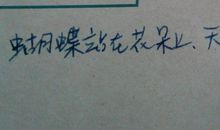 蝴蝶站在花朵上、天